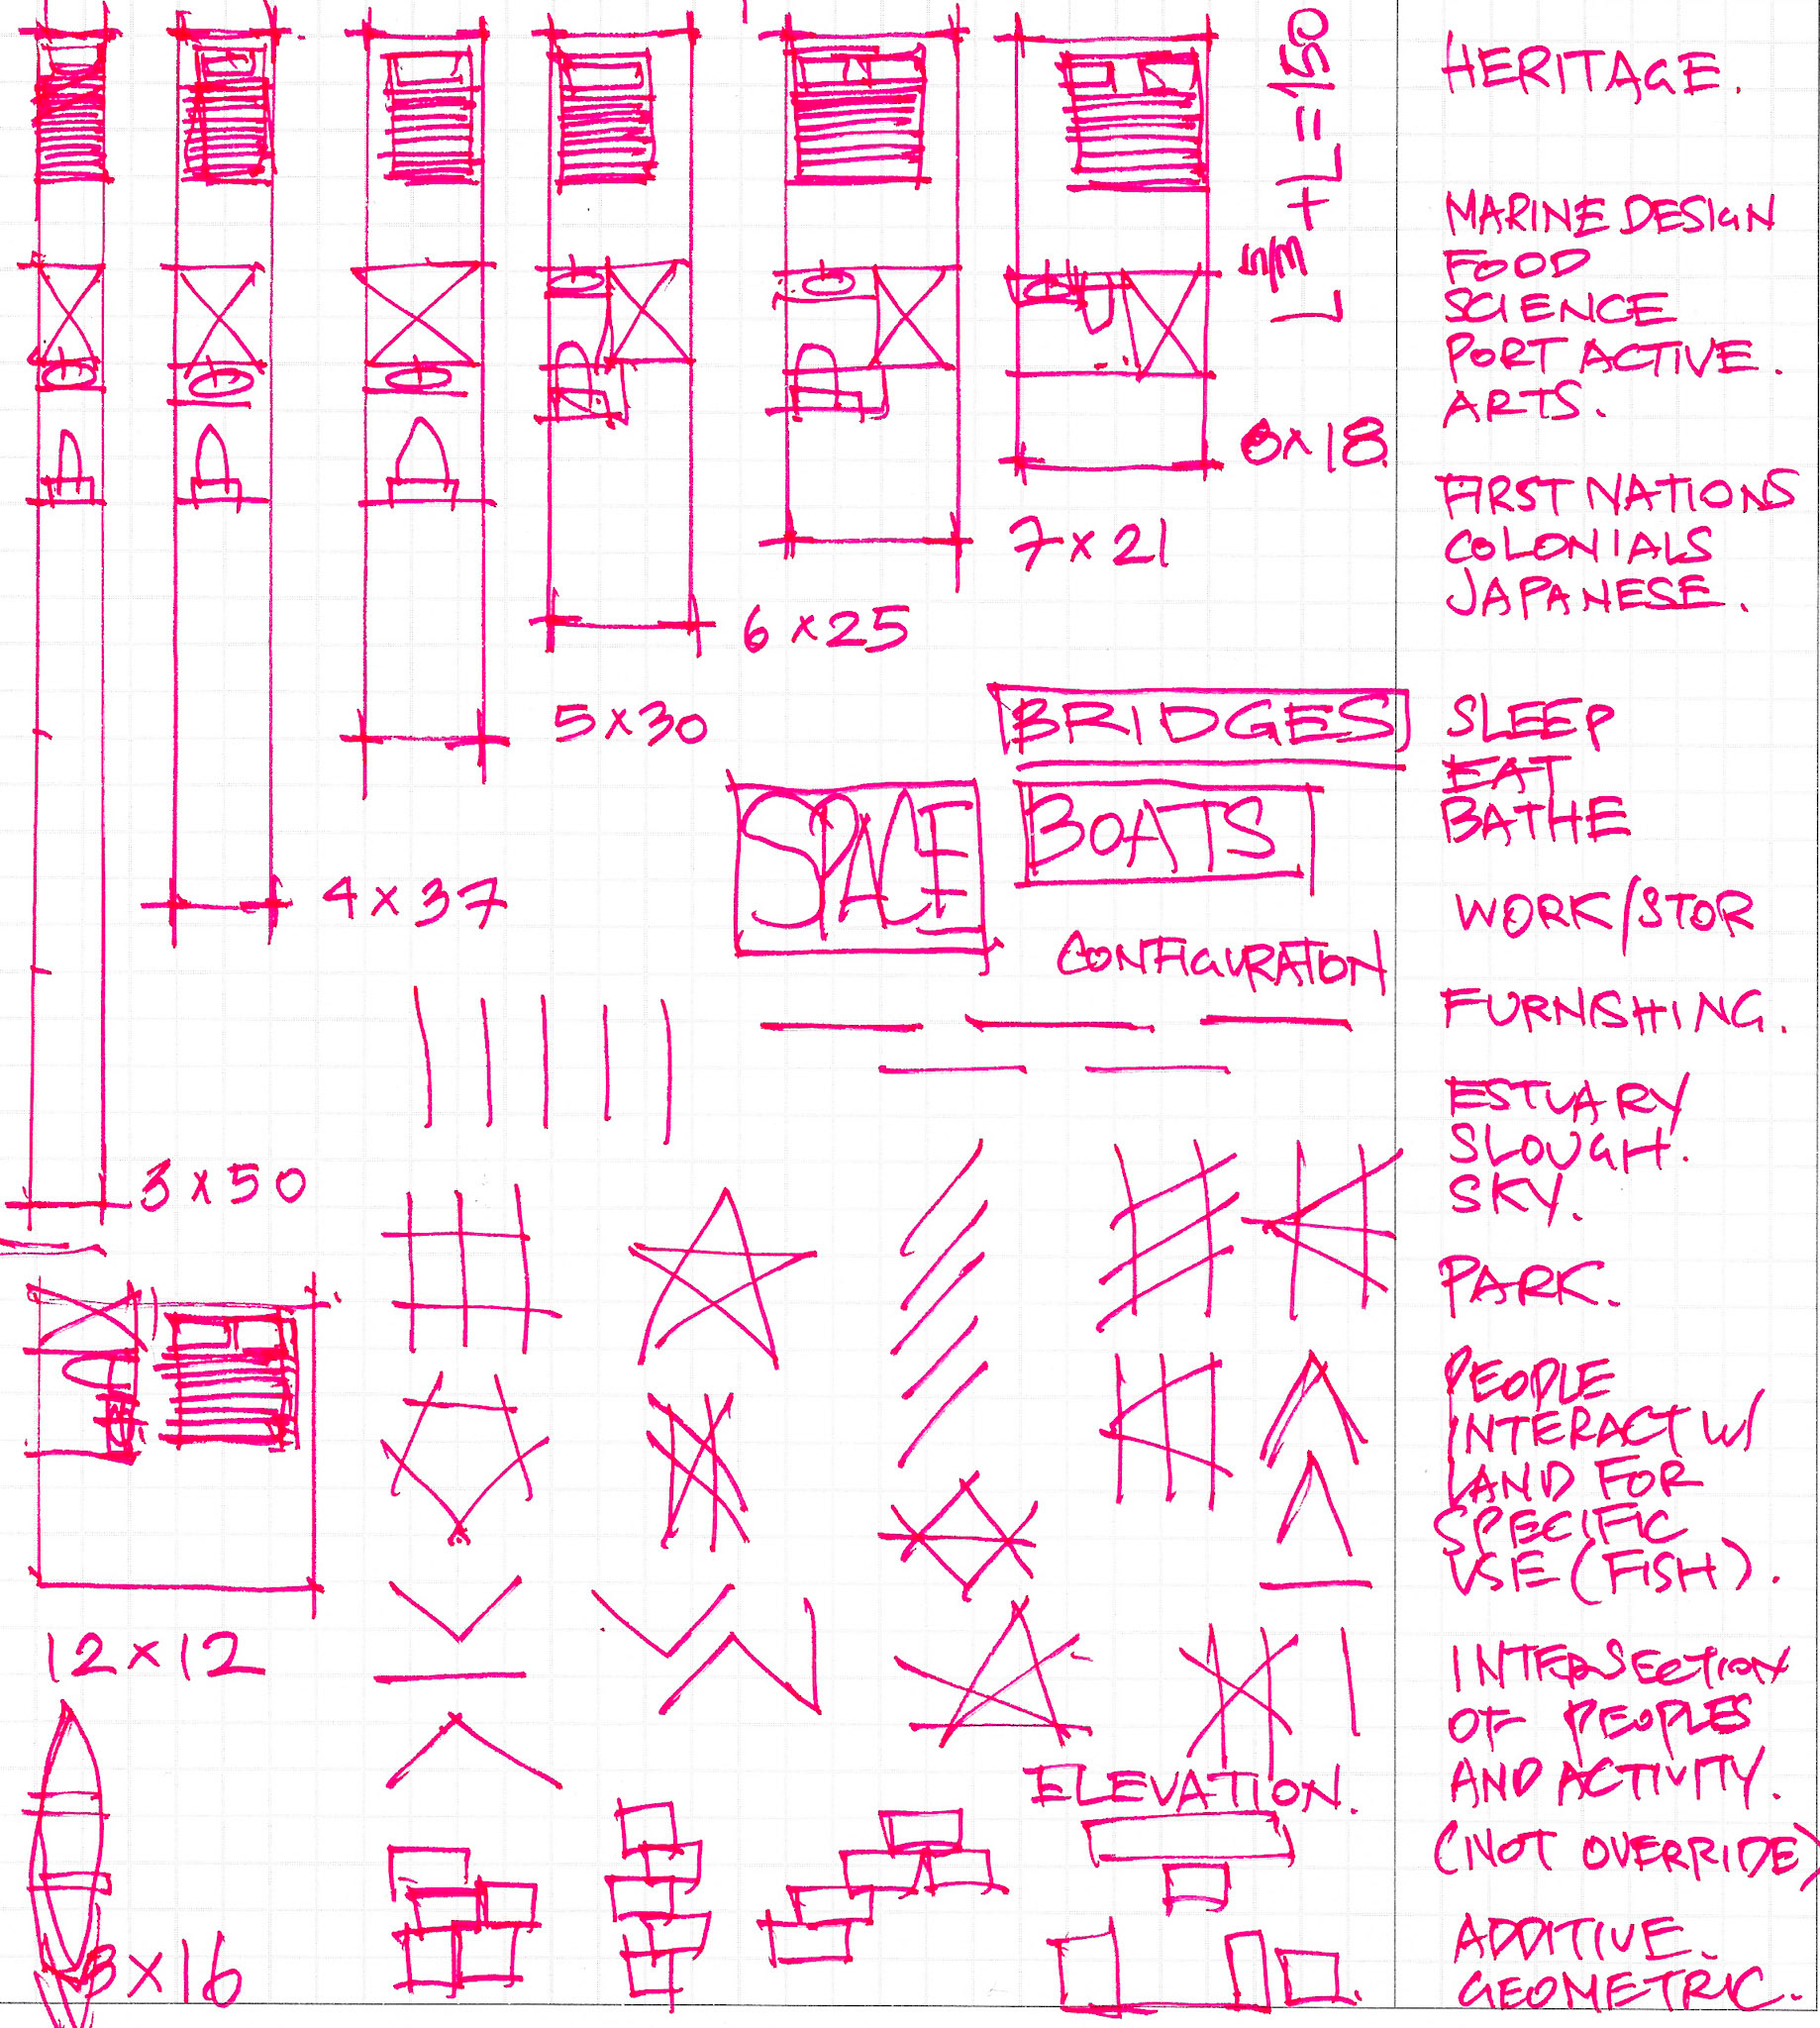 HERITAGE.
MARINE DESIGN
FOOD
SCIENCE
PORT ACTIVE.
ARTS.
FIRST NATIONS
COLONIALS
JAPANESE.
SLEEP
EAT
BATHE
WORK/STOR
FURNISHING.
ESTUARY
SLOUGH.
SKY.
PARK.
PEOPLE
INTERACT W/
LAND FOR
SPECIFIC
USE (FISH).
INTERSECTION
OF PEOPLES
AND ACTIVITY.
(NOT OVERRIDE)
ADDITIVE.
GEOMETRIC.
+L=150
8x18.
7x21
6x25
5x30
4x37
3x50
12x12
3x16
BRIDGES
SPACE
BOATS
CONFIGURATION
ELEVATION.